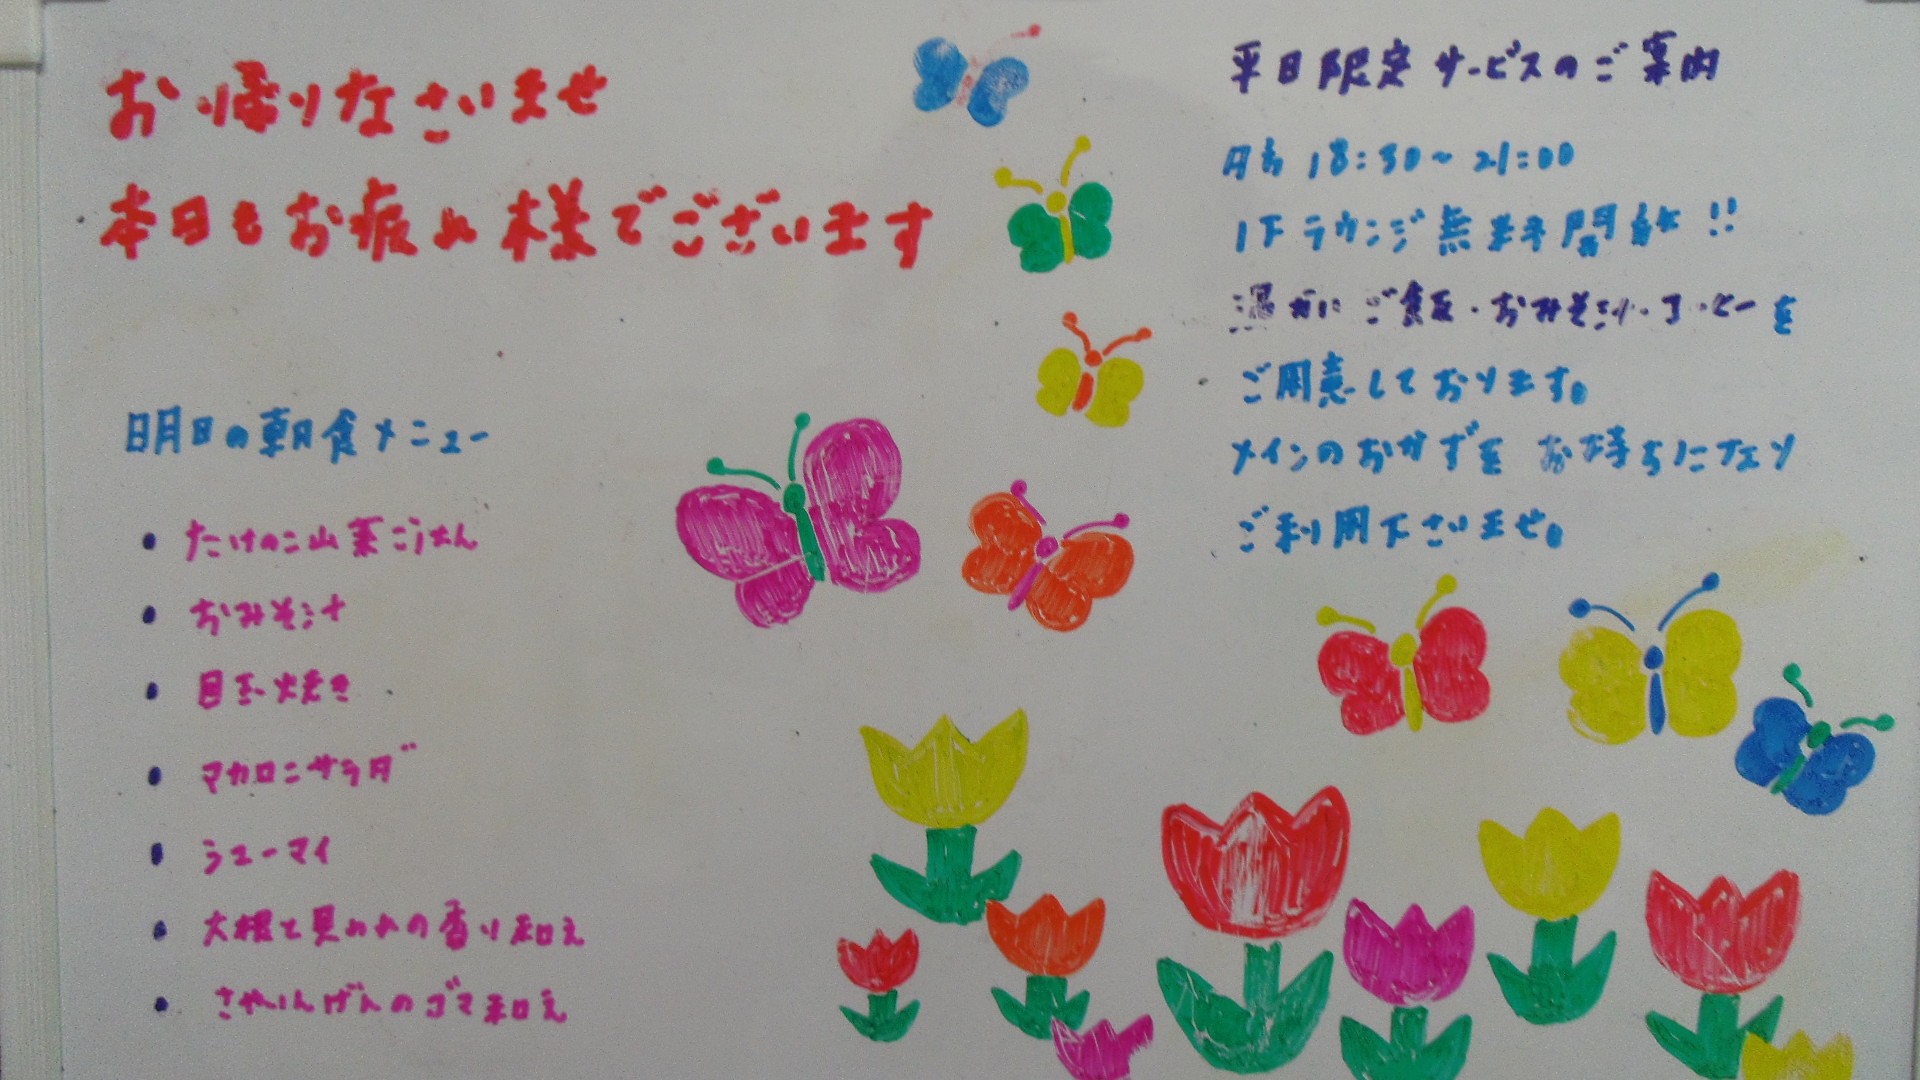 お帰りなさいませ
本日もお疲れ様でございます
明日の朝食メニュー
• たけのこ山菜ごはん
• おみそ汁
• 目玉焼き
• マカロニサラダ
• シューマイ
• 大根と貝われの香り和え
• さやいんげんのゴマ和え
平日限定サービスのご案内
18:30〜21:00
1Fラウンジ無料開放!!
温かいご飯・おみそ汁・コーヒーを
ご用意しております。
メインのおかずをお持ちになり
ご利用下さいませ。